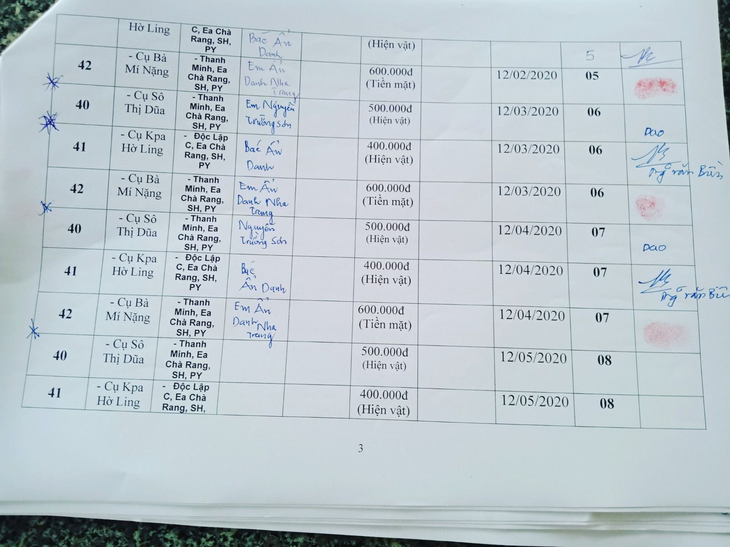 Hờ Ling C, Ea Chà Rang, SH, PY Bác Ẩn Danh (Hiện vật) 5
42 - Cụ Bà Mí Nặng - Thanh Minh, Ea Chà Rang, SH, PY Em Ẩn Danh Nha Trang 600.000đ (Tiền mặt) 12/02/2020 05
40 - Cụ Sô Thị Dũa - Thanh Minh, Ea Chà Rang, SH, PY Em Nguyễn Trường Sơn 500.000đ (Hiện vật) 12/03/2020 06 Dao
41 - Cụ Kpa Hờ Ling - Độc Lập C, Ea Chà Rang, SH, PY Bác Ẩn Danh 400.000đ (Hiện vật) 12/03/2020 06
42 - Cụ Bà Mí Nặng - Thanh Minh, Ea Chà Rang, SH, PY Em Ẩn Danh Nha Trang 600.000đ (Tiền mặt) 12/03/2020 06
40 - Cụ Sô Thị Dũa - Thanh Minh, Ea Chà Rang, SH, PY Nguyễn Trường Sơn 500.000đ (Hiện vật) 12/04/2020 07 Dao
41 - Cụ Kpa Hờ Ling - Độc Lập C, Ea Chà Rang, SH, PY Bác Ẩn Danh 400.000đ (Hiện vật) 12/04/2020 07
42 - Cụ Bà Mí Nặng - Thanh Minh, Ea Chà Rang, SH, PY Em Ẩn Danh Nha Trang 600.000đ (Tiền mặt) 12/04/2020 07
40 - Cụ Sô Thị Dũa - Thanh Minh, Ea Chà Rang, SH, PY 500.000đ (Hiện vật) 12/05/2020 08
41 - Cụ Kpa Hờ Ling - Độc Lập C, Ea Chà Rang, SH, 400.000đ (Hiện vật) 12/05/2020 08
3